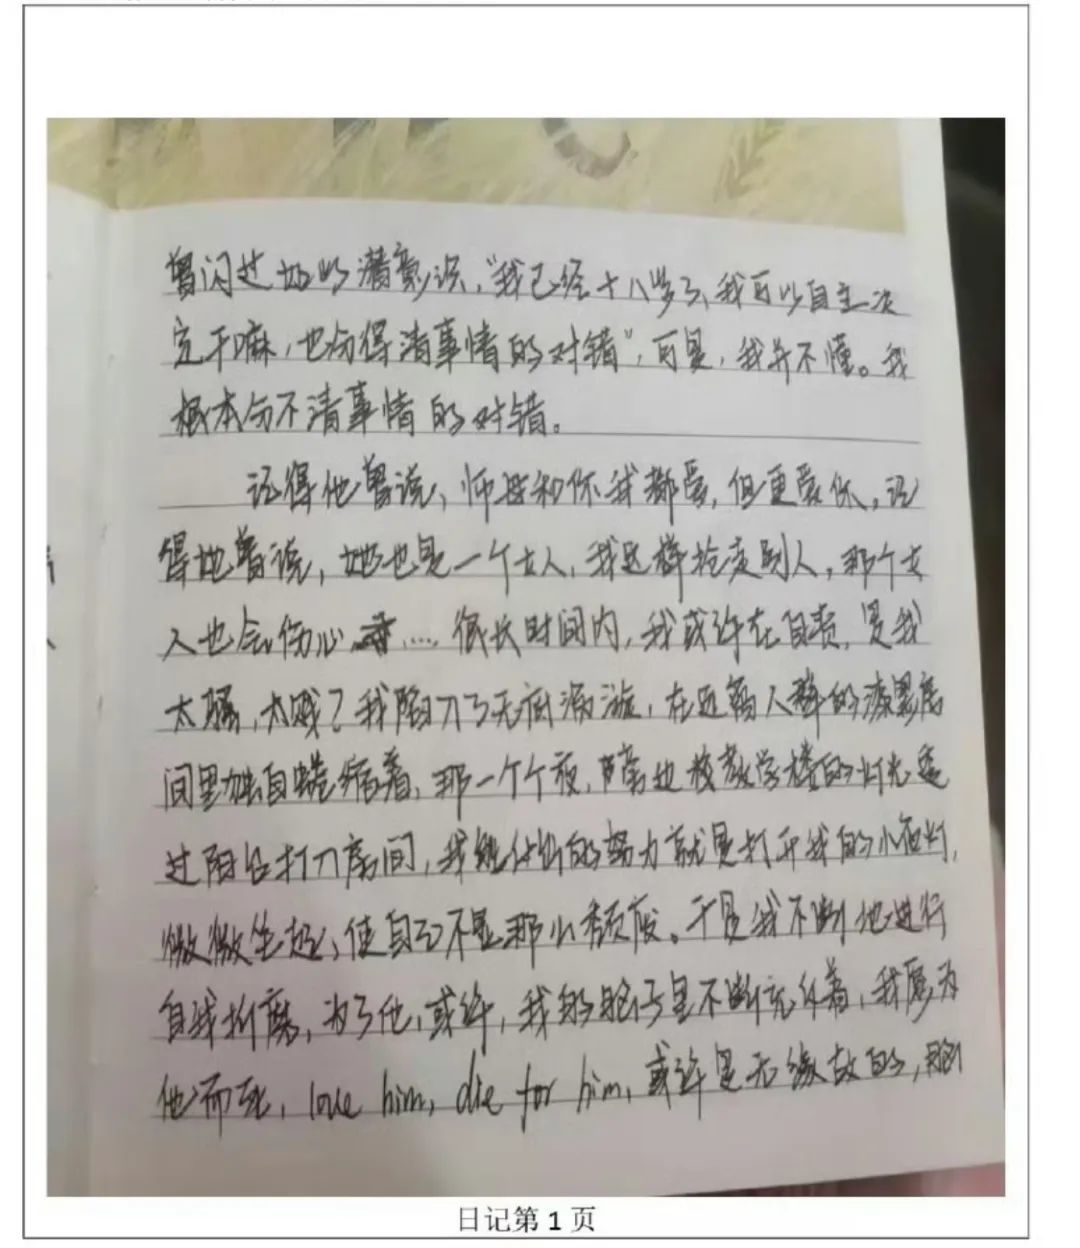 曾闪过她的潜意识，“我已经十八岁了，我可以自主决
定干嘛，也分得清事情的对错”，可是，我并不懂。我
根本分不清事情的对错。
记得他曾说，师母和你我都爱，但更爱你，记
得他曾说，她也是一个女人，我这样抢走别人，那个女
人也会伤心……很长时间内，我或许在自责，是我
太骚，太贱？我陷入了无底漩涡，在远离人群的漆黑房
间里独自蜷缩着，那一个个夜，旁边校教学楼的灯光透
过阳台打入房间，我能付出的努力就是打开我的小夜灯，
微微坐起，使自己不显那么颓废。于是我不断地进行
自我折磨，为了他，或许，我的脑子里不断充斥着，我愿为
他而死，love him, die for him, 或许是无缘故的，脑
日记第 1 页